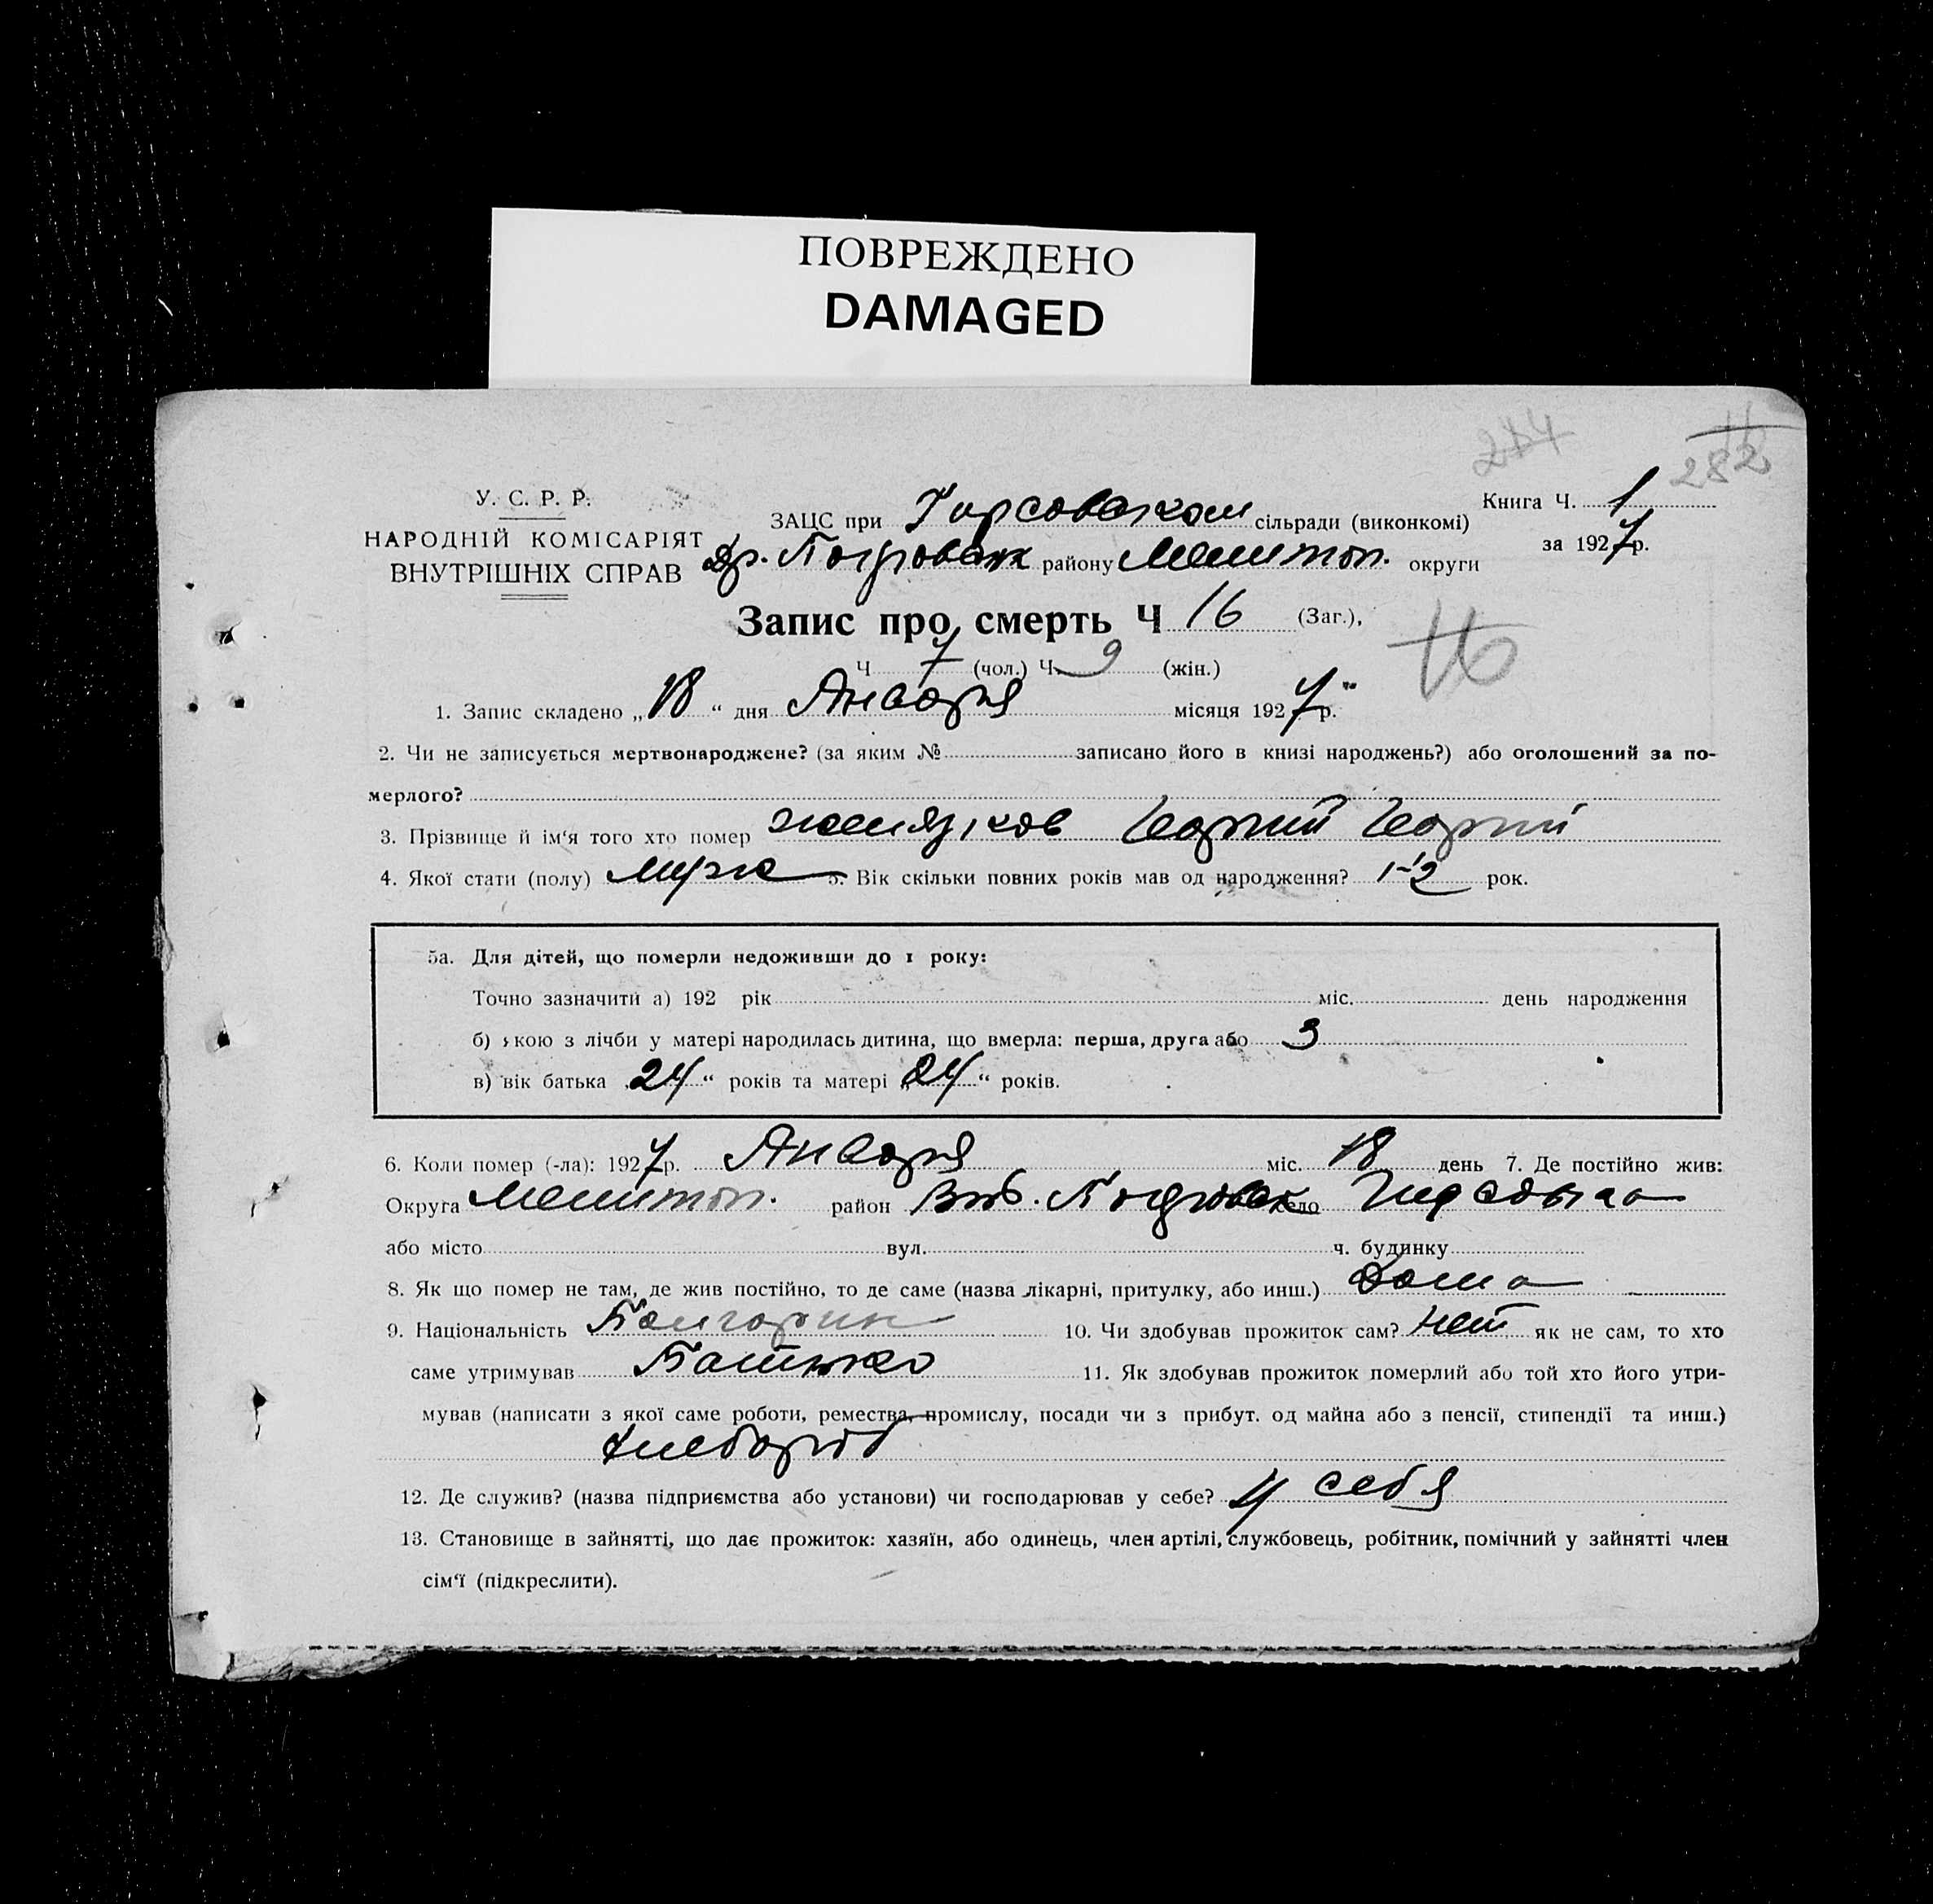 ПОВРЕЖДЕНО
DAMAGED
284
282
У. С. Р. Р.
НАРОДНІЙ КОМІСАРІЯТ
ВНУТРІШНІХ СПРАВ
Книга Ч. 1
за 1927 р.
ЗАЦС при Гирсовском сільради (виконкомі)
району Мелитоп. округи
Запис про смерть Ч 16 (Заг.),
Ч 7 (чол.) Ч 9 (жін.)
16
1. Запис складено „18“ дня Января місяця 1927 р.
2. Чи не записується мертвонароджене? (за яким № записано його в книзі народжень?) або оголошений за по-
мерлого?
3. Прізвище й ім‘я того хто помер Георгий Георгий
4. Якої стати (полу) мужс 5. Вік скільки повних років мав од народження? рок.
5а. Для дітей, що померли недоживши до 1 року:
Точно зазначити а) 192 рік міс. день народження
б) якою з лічби у матері народилась дитина, що вмерла: перша, друга або 3
в) вік батька „24“ років та матері „24“ років.
6. Коли помер (-ла): 1927 р. Января міс. 18 день 7. Де постійно жив:
Округа Мелитоп. район село Гирсовка
або місто вул. ч. будинку
8. Як що помер не там, де жив постійно, то де саме (назва лікарні, притулку, або инш.) Дома
9. Національність Болгарин 10. Чи здобував прожиток сам? Нет як не сам, то хто
саме утримував Батько 11. Як здобував прожиток померлий або той хто його утри-
мував (написати з якої саме роботи, ремества, промислу, посади чи з прибут. од майна або з пенсії, стипендії та инш.)
хлебороб
12. Де служив? (назва підприємства або установи) чи господарював у себе? У себя
13. Становище в зайнятті, що дає прожиток: хазяїн, або одинець, член артілі, службовець, робітник, помічний у зайнятті член
сім‘ї (підкреслити).